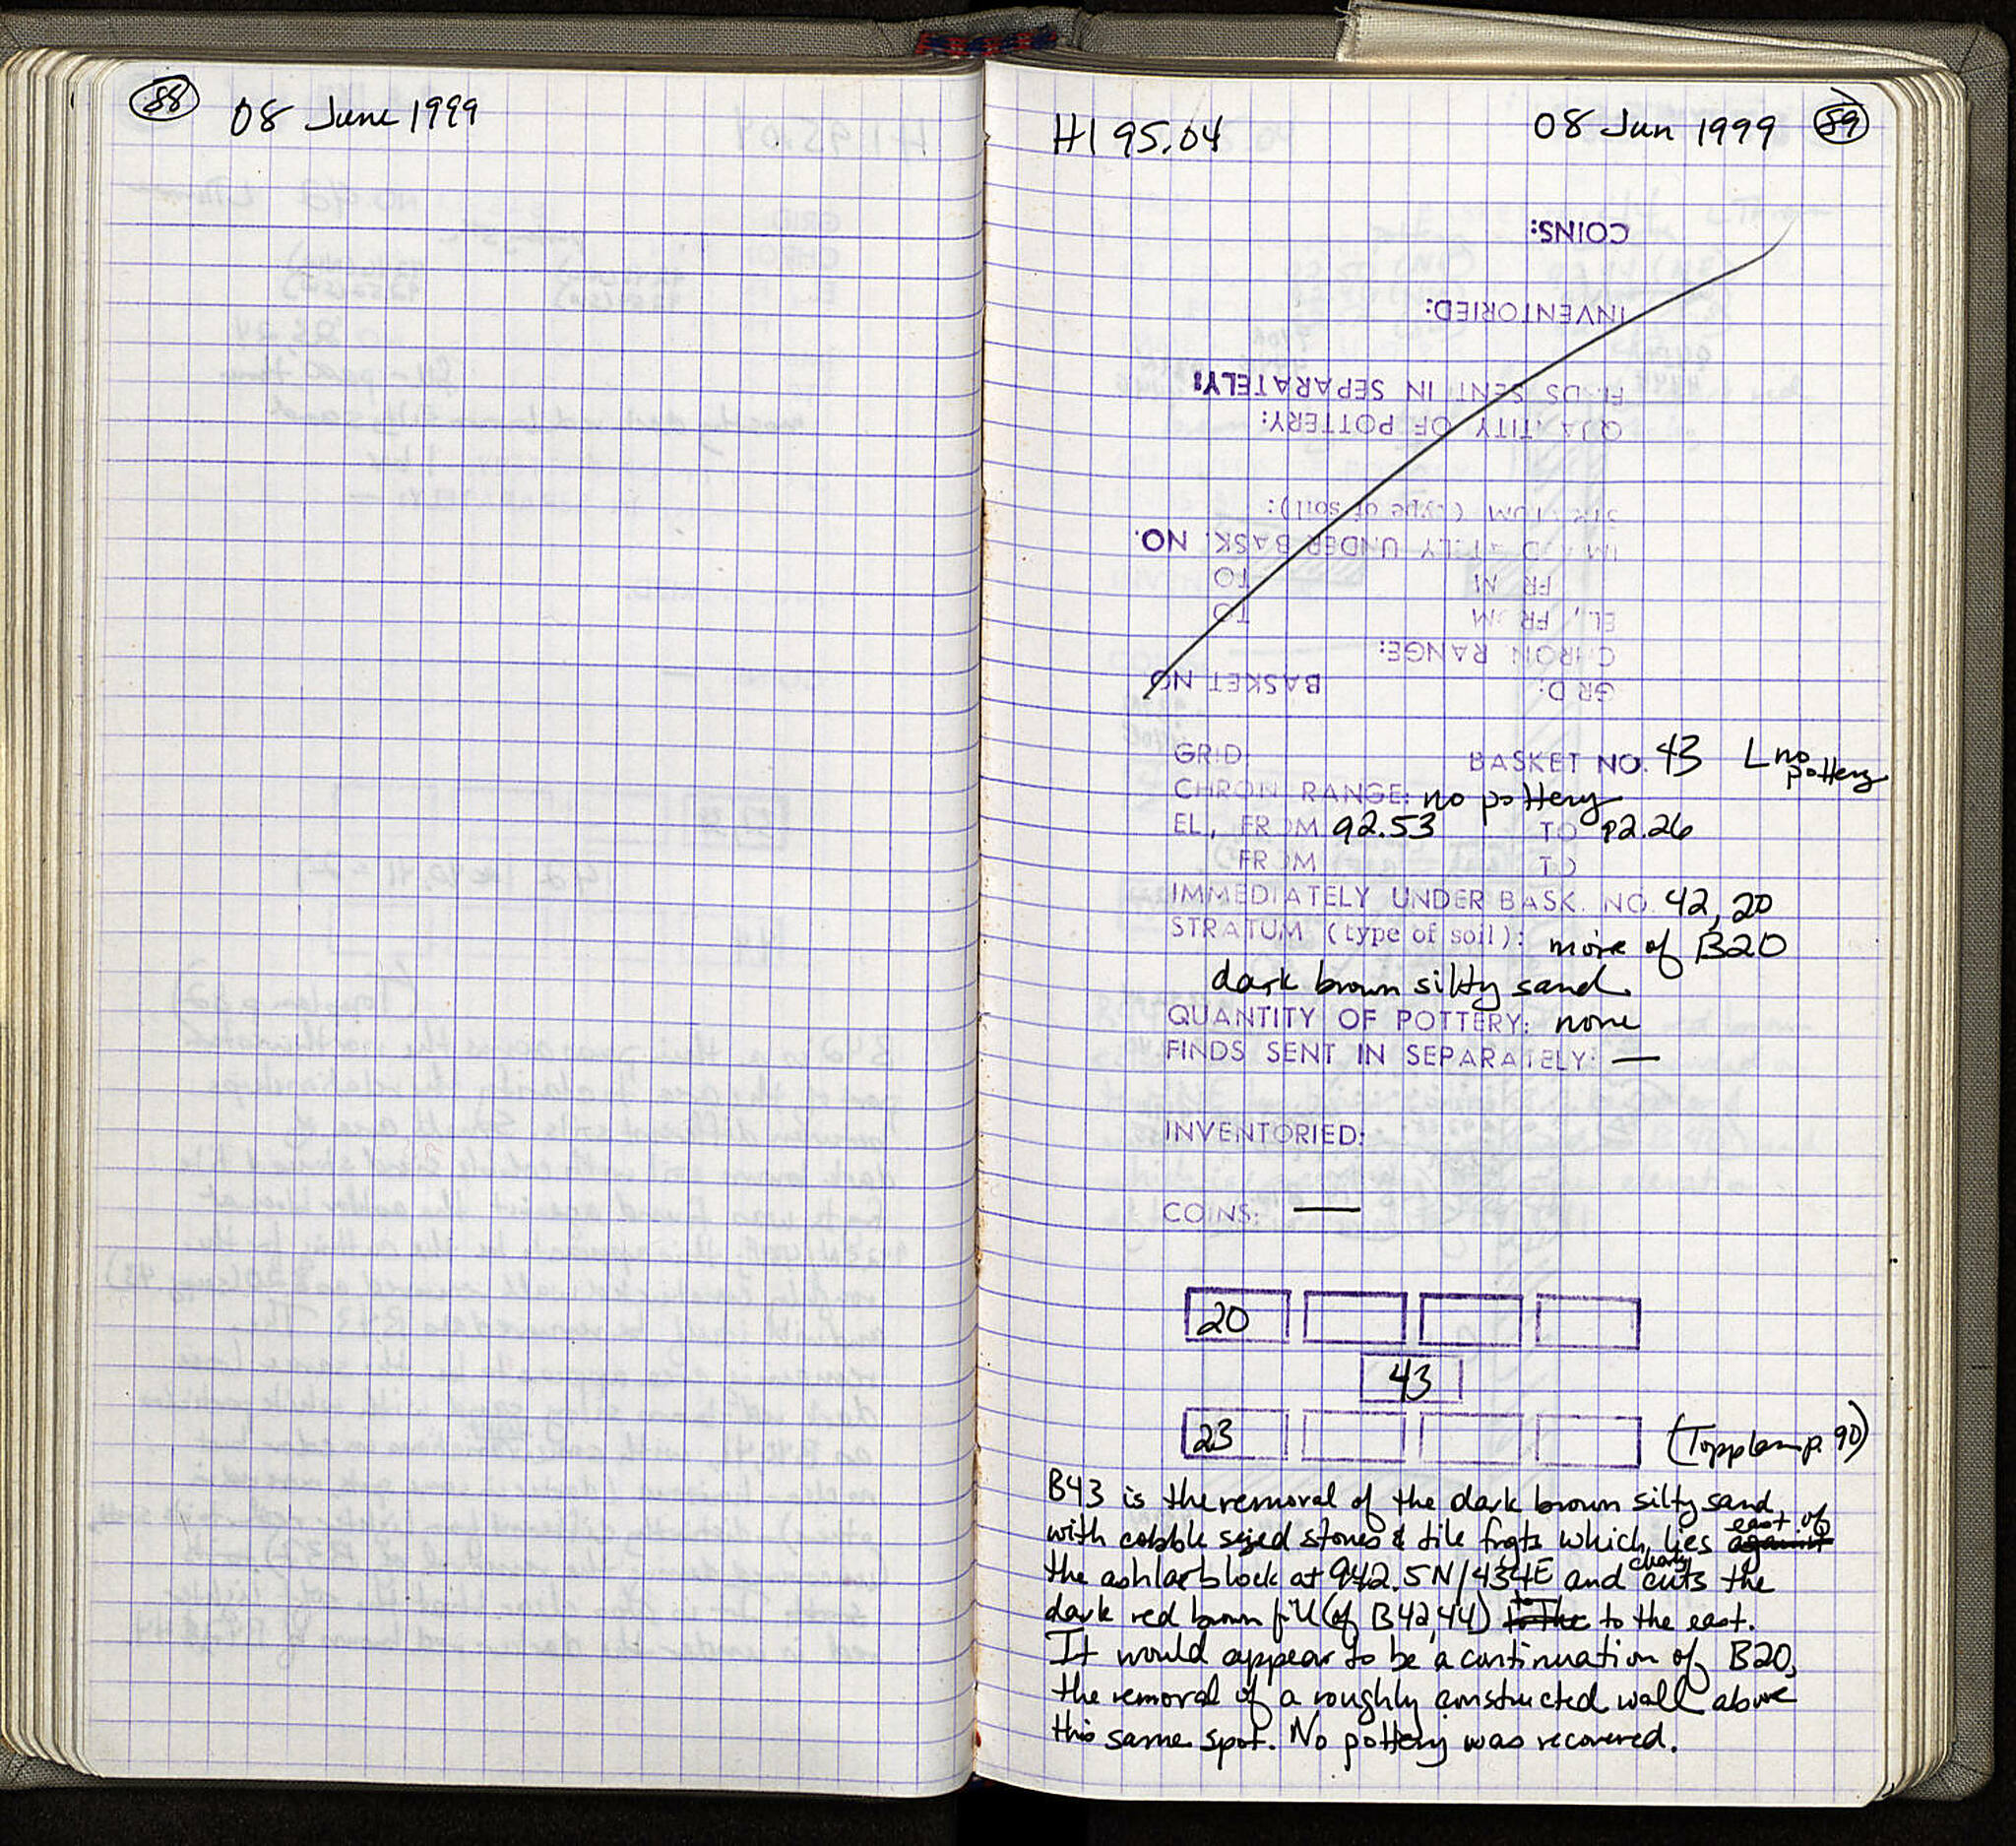 88 08 June 1999
HI 95.04 08 Jun 1999 89
COINS:
INVENTORIED:
FINDS SENT IN SEPARATELY:
QUANTITY OF POTTERY:
STRATUM (type of soil):
IMMEDIATELY UNDER BASK. NO.
FROM TO
EL, FROM TO
CHRON RANGE:
GRID: BASKET NO.
GRID: BASKET NO. 43 L no pottery
CHRON RANGE: no pottery
EL, FROM 92.53 TO 92.26
FROM TO
IMMEDIATELY UNDER BASK. NO. 42, 20
STRATUM (type of soil): more of B20
dark brown silty sand
QUANTITY OF POTTERY: none
FINDS SENT IN SEPARATELY: —
INVENTORIED:
COINS: —
20
43
23
(Topplan p. 90)
B43 is the removal of the dark brown silty sand
with cobble sized stones & tile frgts which lies east of against
the ashlar block at 942.5N/434E and clearly cuts the
dark red brown fill (of B42, 44) to the east.
It would appear to be a continuation of B20,
the removal of a roughly constructed wall above
this same spot. No pottery was recovered.